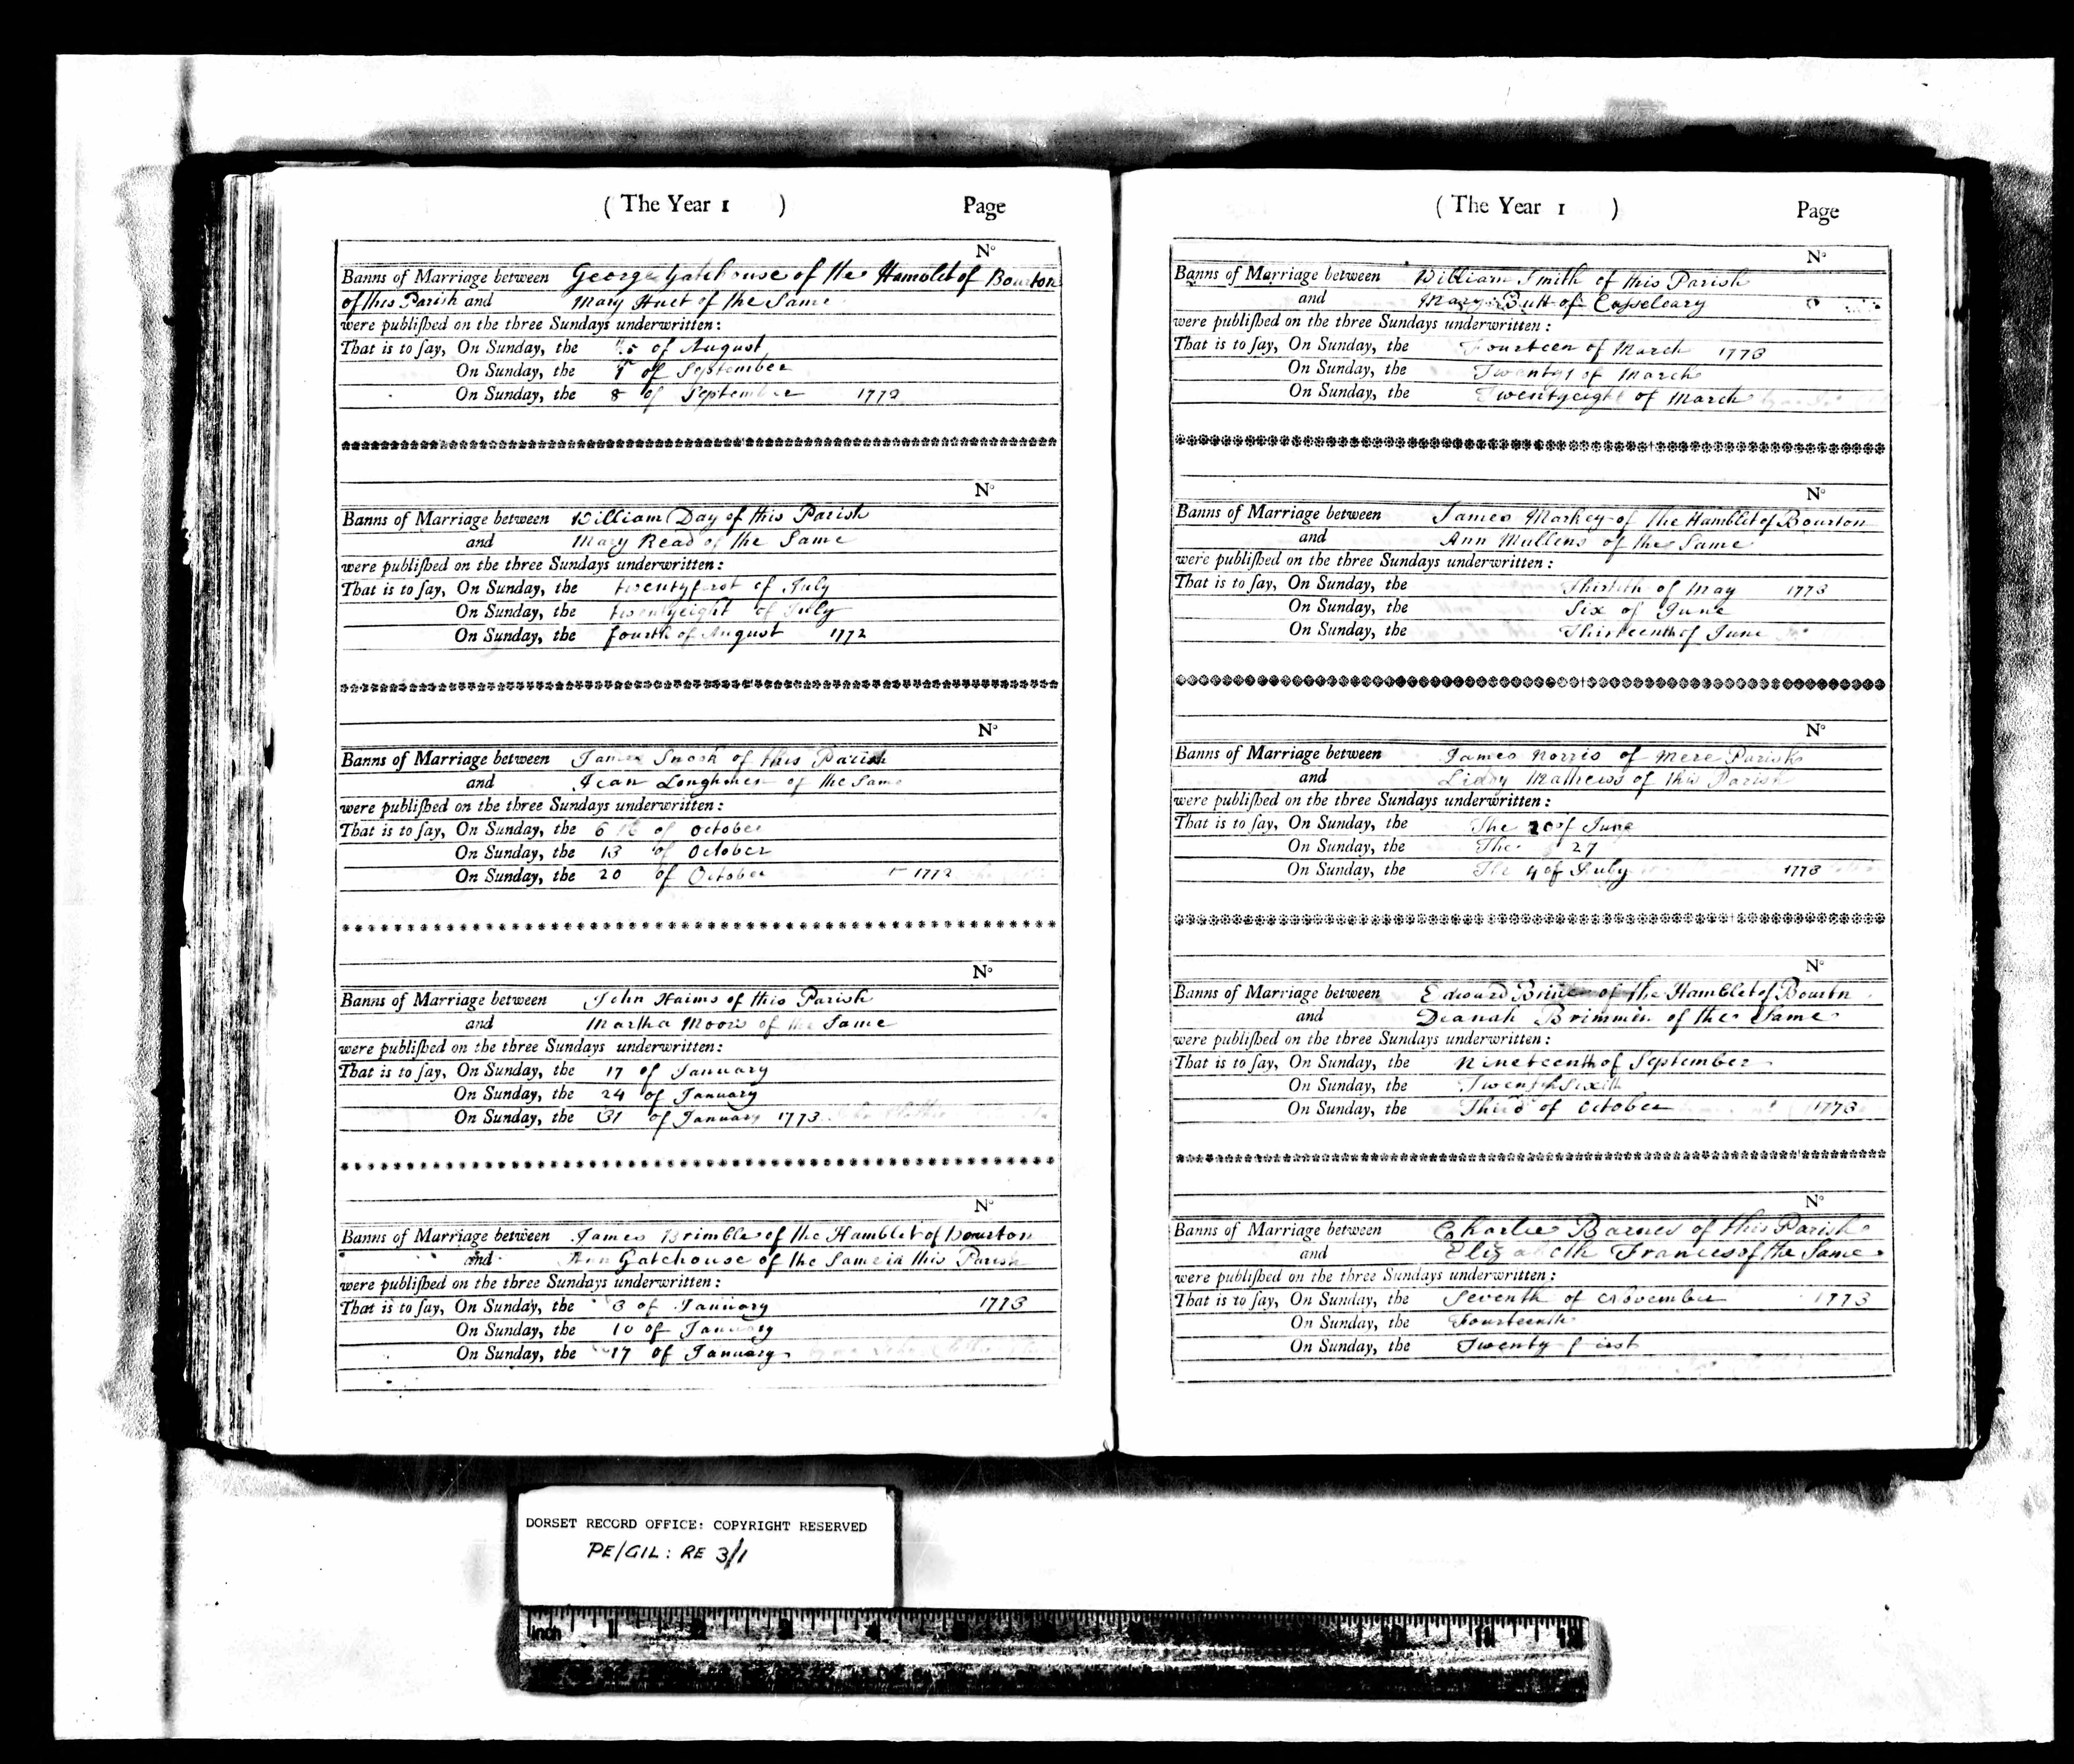 ( The Year 1 ) Page
N°
Banns of Marriage between George Gatehouse of the Hamblet of Bourton
of this Parish and Mary Huet of the Same
were published on the three Sundays underwritten:
That is to say, On Sunday, the of August
On Sunday, the of September
On Sunday, the 8 of September 1772
N°
Banns of Marriage between William Day of this Parish
and Mary Read of the Same
were published on the three Sundays underwritten:
That is to say, On Sunday, the twentyfirst of July
On Sunday, the twentyeight of July
On Sunday, the fourth of August 1772
N°
Banns of Marriage between James Snook of this Parish
and Jean of the Same
were published on the three Sundays underwritten:
That is to say, On Sunday, the 6 of October
On Sunday, the 13 of October
On Sunday, the 20 of October 1772
N°
Banns of Marriage between John Haims of this Parish
and Martha Moors of the Same
were published on the three Sundays underwritten:
That is to say, On Sunday, the 17 of January
On Sunday, the 24 of January
On Sunday, the 31 of January 1773
N°
Banns of Marriage between James Brimble of the Hamblet of Bourton
and Ann Gatehouse of the Same in this Parish
were published on the three Sundays underwritten:
That is to say, On Sunday, the 3 of January 1773
On Sunday, the 10 of January
On Sunday, the 17 of January
( The Year 1 ) Page
N°
Banns of Marriage between William Smith of this Parish
and Mary Butt of Casselcary
were published on the three Sundays underwritten:
That is to say, On Sunday, the Fourteen of March 1773
On Sunday, the Twenty1 of March
On Sunday, the Twentyeight of March
N°
Banns of Marriage between James Markey of the Hamblet of Bourton
and Ann Mullens of the Same
were published on the three Sundays underwritten:
That is to say, On Sunday, the Thirtith of May 1773
On Sunday, the Six of June
On Sunday, the Thirteenth of June
N°
Banns of Marriage between James Norris of Mere Parish
and Liddy Mathews of this Parish
were published on the three Sundays underwritten:
That is to say, On Sunday, the The 20 of June
On Sunday, the The 27
On Sunday, the The 4 of July 1773
N°
Banns of Marriage between Edward of the Hamblet of Bourtn
and Deanah Brimmin of the Same
were published on the three Sundays underwritten:
That is to say, On Sunday, the Nineteenth of September
On Sunday, the
On Sunday, the Third of October 1773
N°
Banns of Marriage between Charles Barnes of this Parish
and Elizabeth Frances of the Same
were published on the three Sundays underwritten:
That is to say, On Sunday, the Seventh of November 1773
On Sunday, the Fourteenth
On Sunday, the Twenty first
DORSET RECORD OFFICE: COPYRIGHT RESERVED
PE/GIL: RE 3/1
Inch